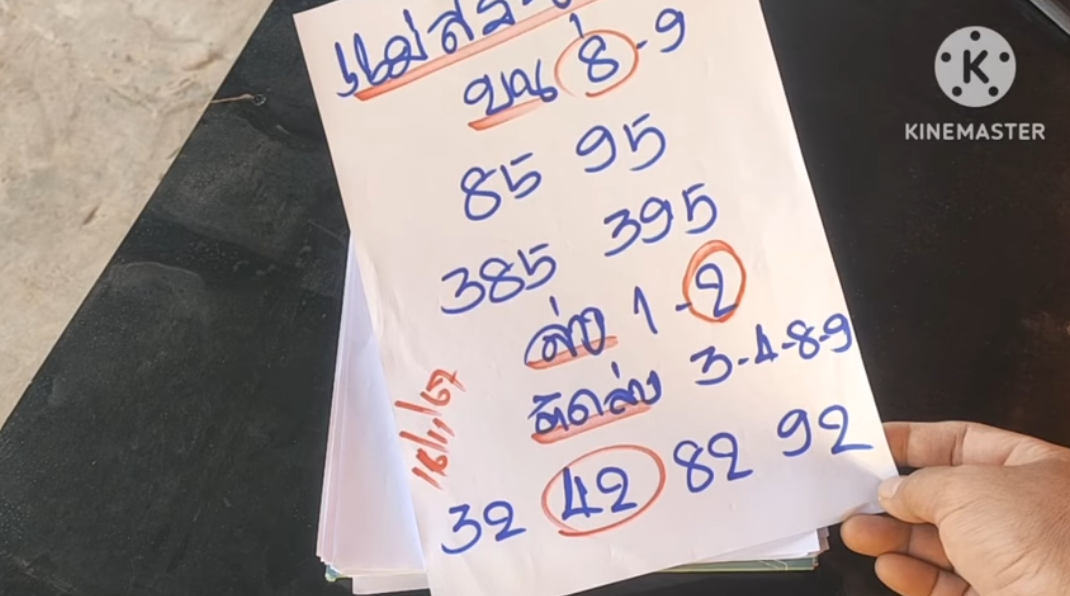 บน 8-9
85 95
385 395
ล่าง 1-2
ตัดล่าง 3-4-8-9
32 42 82 92
KINEMASTER